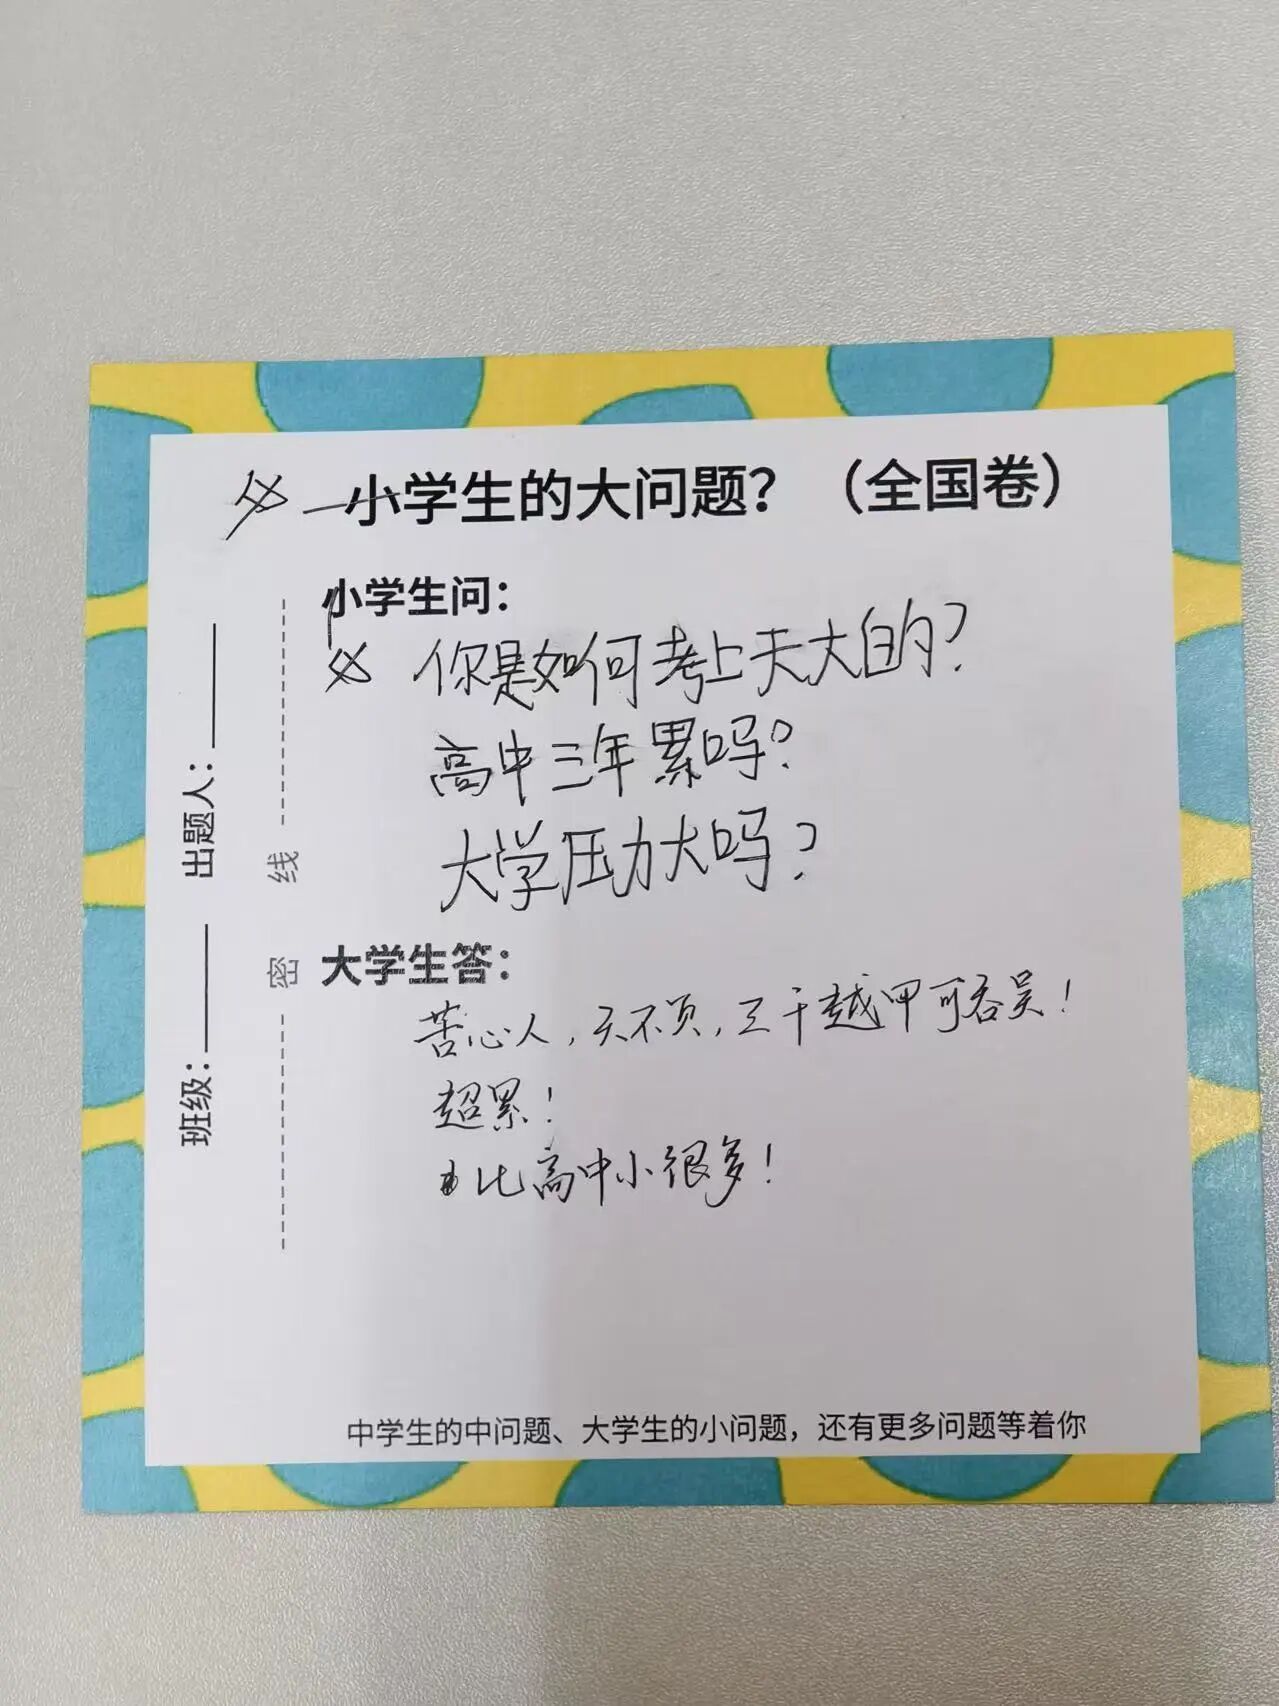 小学生的大问题？（全国卷）
小学生问：
你是如何考上天大的？
高中三年累吗？
大学压力大吗？
大学生答：
苦心人，天不负，三千越甲可吞吴！
超累！
比高中小很多！
中学生的中问题、大学生的小问题，还有更多问题等着你
班级：
出题人：
密
线